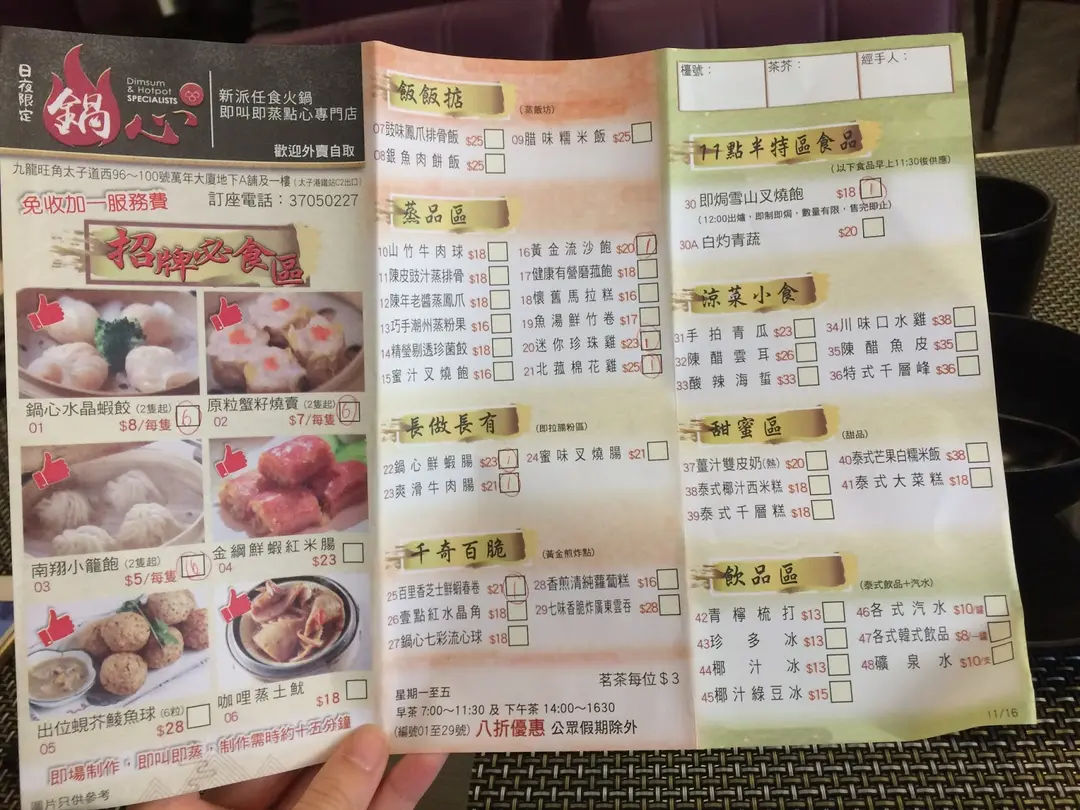 日夜限定
鍋心
Dimsum
& Hotpot
SPECIALISTS
新派任食火鍋
即叫即蒸點心專門店
歡迎外賣自取
九龍旺角太子道西96～100號萬年大廈地下A舖及一樓 (太子港鐵站C2出口)
免收加一服務費
訂座電話：37050227
招牌必食區
鍋心水晶蝦餃 (2隻起)
01 $8/每隻 6
原粒蟹籽燒賣 (2隻起)
02 $7/每隻 6
南翔小籠飽 (2隻起)
03 $5/每隻 6
金綱鮮蝦紅米腸
04 $23
出位蜆芥鯪魚球 (6粒)
05 $28
咖喱蒸土魷
06 $18
即場制作，即叫即蒸，制作需時約十五分鐘
圖片只供參考
飯飯掂 (蒸飯坊)
07豉味鳳爪排骨飯 $25
08銀魚肉餅飯 $25
09腊味糯米飯 $25
蒸品區
10山竹牛肉球 $18
11陳皮豉汁蒸排骨 $18
12陳年老醬蒸鳳爪 $18
13巧手潮州蒸粉果 $16
14精瑩剔透珍菌餃 $18
15蜜汁叉燒飽 $16
16黃金流沙飽 $20 1
17健康有營磨菰飽 $18
18懷舊馬拉糕 $16
19魚湯鮮竹卷 $17
20迷你珍珠雞 $23 1
21北菰棉花雞 $25 1
長做長有 (即拉腸粉區)
22鍋心鮮蝦腸 $23 1
23爽滑牛肉腸 $21 1
24蜜味叉燒腸 $21
千奇百脆 (黃金煎炸點)
25百里香芝士鮮蝦春卷 $21 1
26壹點紅水晶角 $18
27鍋心七彩流心球 $18
28香煎清純蘿蔔糕 $16
29七味香脆炸廣東雲吞 $28
茗茶每位$3
星期一至五
早茶 7:00～11:30 及 下午茶 14:00～1630
(編號01至29號) 八折優惠 公眾假期除外
檯號：
茶芥：
經手人：
11點半特區食品
(以下食品早上11:30後供應)
30 即焗雪山叉燒飽 $18 1
(12:00出爐，即制即焗，數量有限，售完即止)
30A 白灼青蔬 $20
涼菜小食
31手拍青瓜 $23
32陳醋雲耳 $26
33酸辣海蜇 $33
34川味口水雞 $38
35陳醋魚皮 $35
36特式千層峰 $36
甜蜜區 (甜品)
37薑汁雙皮奶(熱) $20
38泰式椰汁西米糕 $18
39泰式千層糕 $18
40泰式芒果白糯米飯 $38
41泰式大菜糕 $18
飲品區 (泰式飲品+汽水)
42青檸梳打 $13
43珍多冰 $13
44椰汁冰 $13
45椰汁綠豆冰 $15
46各式汽水 $10/罐
47各式韓式飲品 $8/一罐
48礦泉水 $10/支
11/16